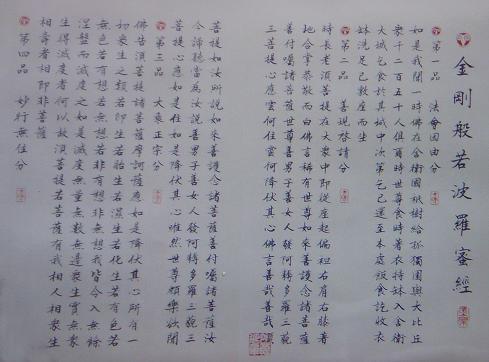 金剛般若波羅蜜經
第一品　法會因由分
如是我聞一時佛在舍衛國祇樹給孤獨園與大比丘
衆千二百五十人俱爾時世尊食時著衣持鉢入舍衛
大城乞食於其城中次第乞已還至本處飯食訖收衣
鉢洗足已敷座而坐
第二品　善現啓請分
時長老須菩提在大衆中即從座起偏袒右肩右膝著
地合掌恭敬而白佛言稀有世尊如來善護念諸菩薩
善付囑諸菩薩世尊善男子善女人發阿耨多羅三藐
三菩提心應云何住云何降伏其心佛言善哉善哉須
菩提如汝所說如來善護念諸菩薩善付囑諸菩薩汝
今諦聽當爲汝說善男子善女人發阿耨多羅三藐三
菩提心應如是住如是降伏其心唯然世尊願樂欲聞
第三品　大乘正宗分
佛告須菩提諸菩薩摩訶薩應如是降伏其心所有一
切衆生之類若卵生若胎生若濕生若化生若有色若
無色若有想若無想若非有想非無想我皆令入無餘
涅槃而滅度之如是滅度無量無數無邊衆生實無衆
生得滅度者何以故須菩提若菩薩有我相人相衆生
相壽者相即非菩薩
第四品　妙行無住分